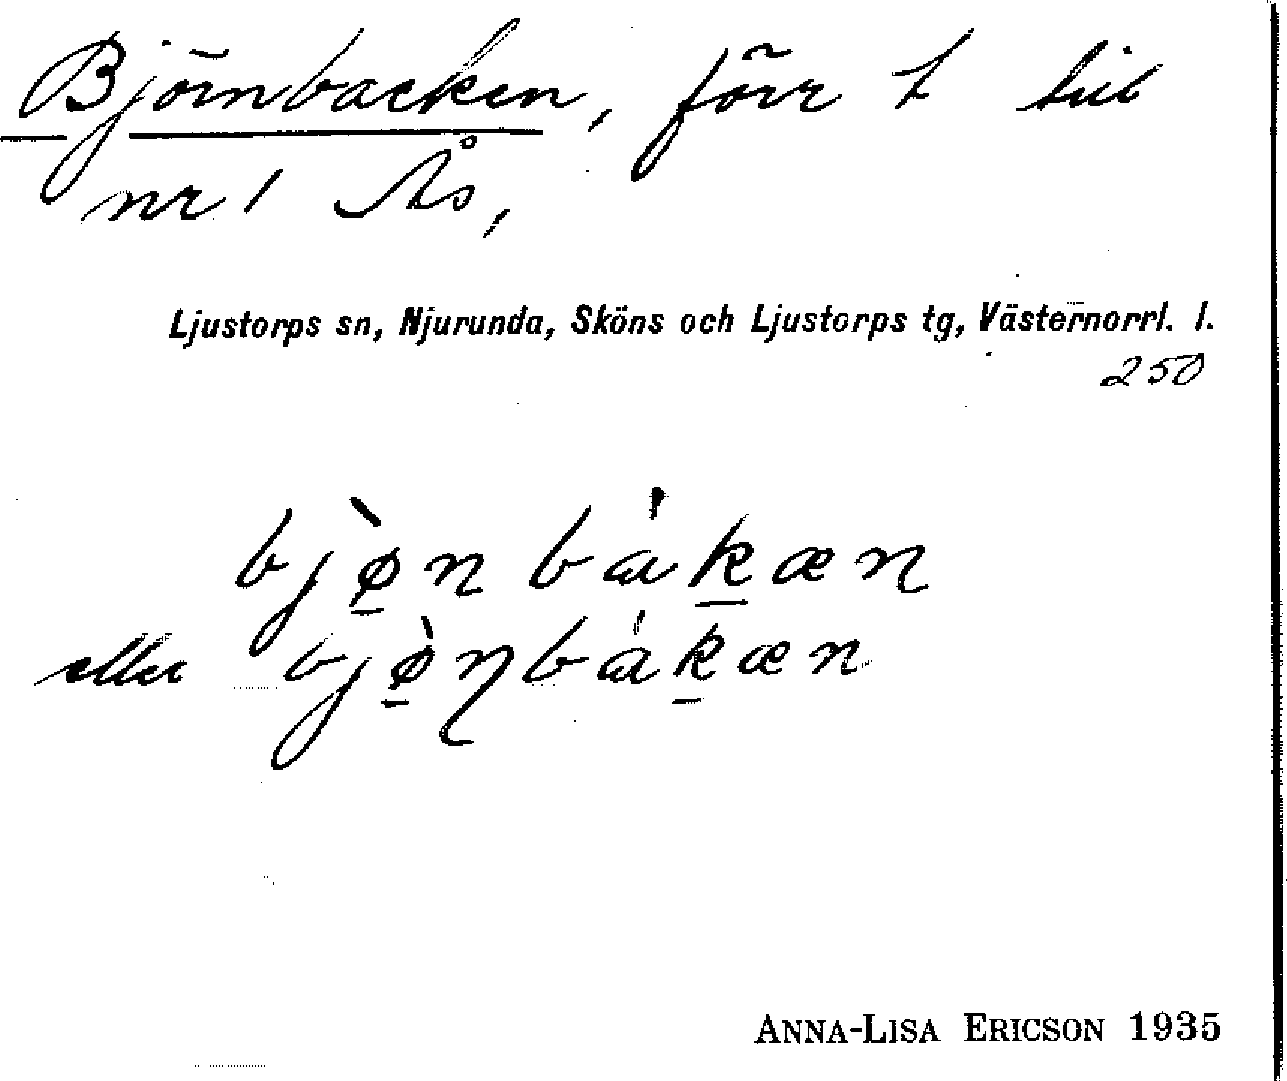 Björnbacken, förr t till
nr 1 Ås,
Ljustorps sn, Njurunda, Sköns och Ljustorps tg, Västernorrl. l.
250
bjø̲̀n bákæn
eller bjø̲̀ŋbák̲æn
ANNA-LISA ERICSON 1935